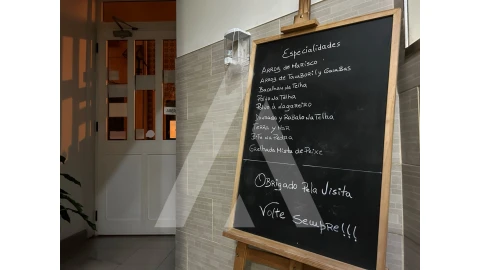 Especialidades
Arroz de Marisco
Arroz de Tamboril y Gambas
Bacalhau na Telha
Polvo na Telha
Polvo à Lagareiro
Dourado y Robalo na Telha
Terra y Mar
Bife na Pedra
Grelhada Mista de Peixe
Obrigado Pela Visita
Volte Sempre!!!